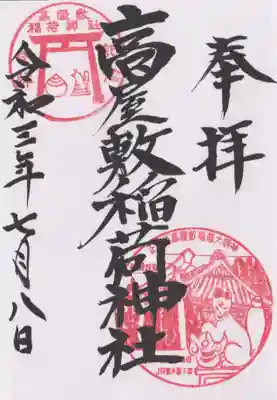 奉拝
高屋敷稲荷神社
令和三年七月八日
高屋敷
稲荷神社